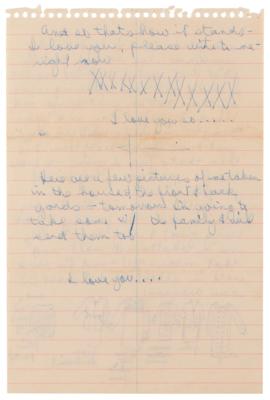 And so that's how it stands -
I love you, please write me
right now
XXXXXXXXXXXXX
I love you so.....
Here are a few pictures of me taken
in the house & the front & back
yards - tomorrow I'm going to
take some w/ the family & will
send them too
I love you....